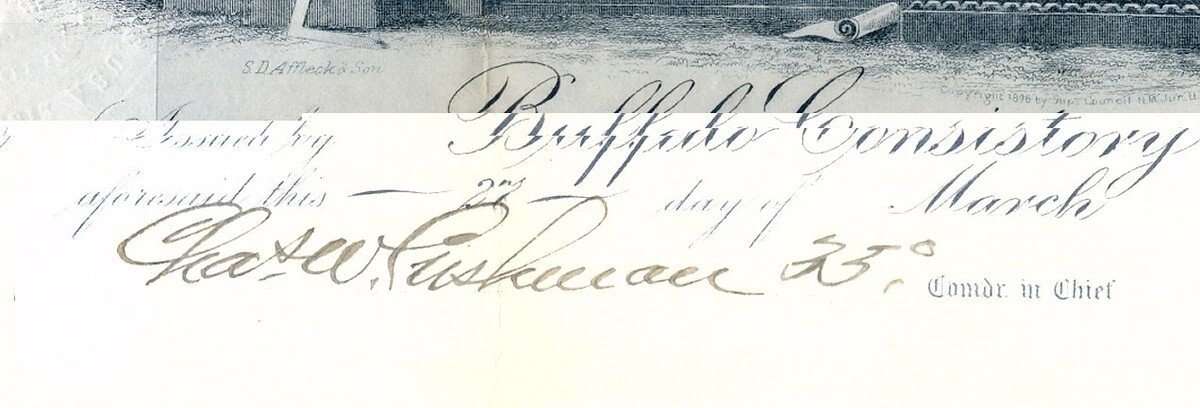 S.D. Affleck & Son
Copyright 1896 by Sup. Council N.M. Jur. U
Issued by Buffalo Consistory
aforesaid this 2nd day of March
Chas. W. Cushman 33.° Comdr. in Chief